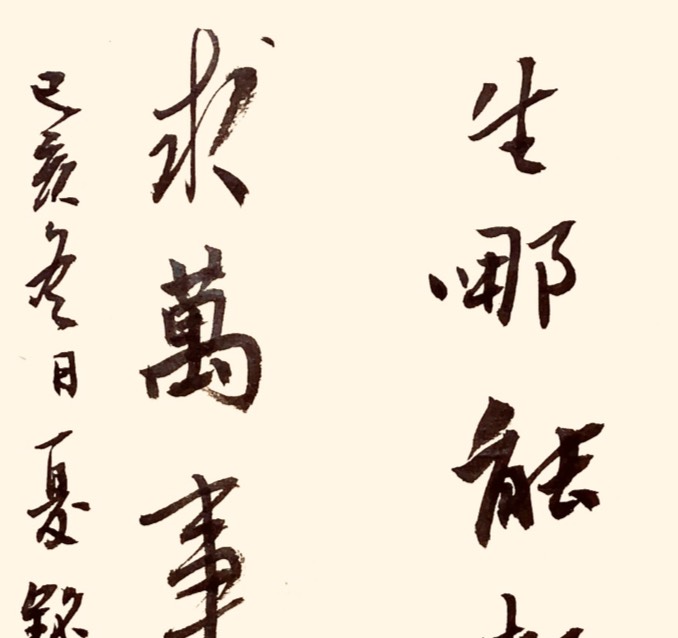 生哪能
求萬事
己亥冬月夏